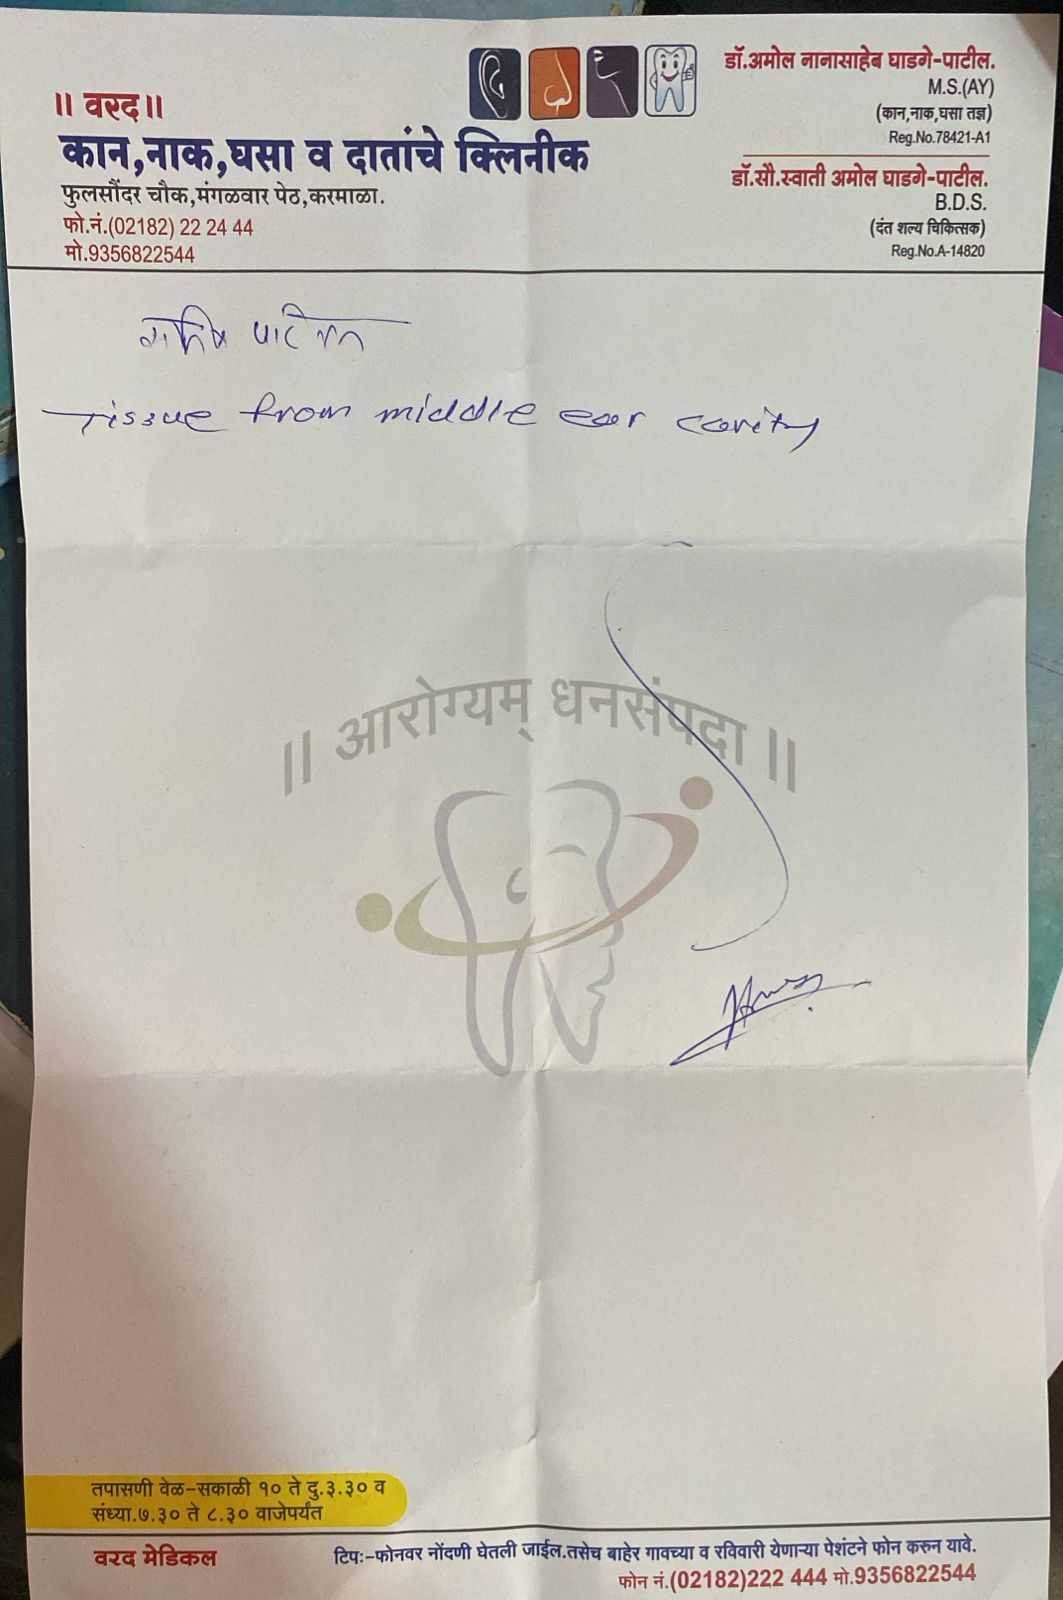 ॥ वरद॥
कान,नाक,घसा व दातांचे क्लिनीक
फुलसौंदर चौक,मंगळवार पेठ,करमाळा.
फो.नं.(02182) 22 24 44
मो.9356822544
डॉ.अमोल नानासाहेब घाडगे-पाटील.
M.S.(AY)
(कान,नाक,घसा तज्ञ)
Reg.No.78421-A1
डॉ.सौ.स्वाती अमोल घाडगे-पाटील.
B.D.S.
(दंत शल्य चिकित्सक)
Reg.No.A-14820
Tissue from middle ear cavity
॥ आरोग्यम् धनसंपदा ॥
तपासणी वेळ-सकाळी १० ते दु.३.३० व
संध्या.७.३० ते ८.३० वाजेपर्यंत
वरद मेडिकल
टिपः-फोनवर नोंदणी घेतली जाईल.तसेच बाहेर गावच्या व रविवारी येणाऱ्या पेशंटने फोन करुन यावे.
फोन नं.(02182)222 444 मो.9356822544